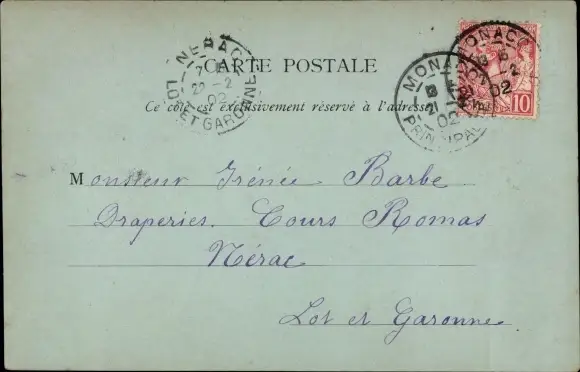 NERAC
7 E
22 -2
02
LOT ET GARONNE
CARTE POSTALE
Ce côté est exclusivement réservé à l'adresse
MONACO
21
02
PRINCIPAUTE
MONACO
02
10
Monsieur Irénée Barbe
Draperies. Cours Romas
Nérac
Lot et Garonne